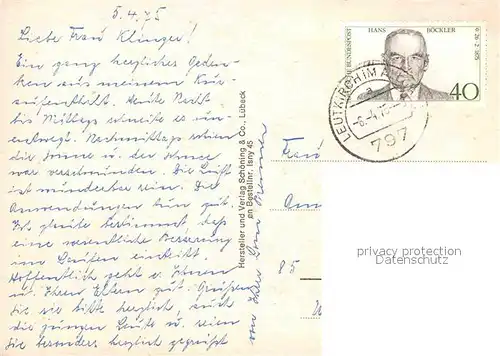 5.4.75
Liebe Frau Klinger!
Ein ganz herzliches Geden-
ken aus meinem Kur-
aufenthalt. Heute Nacht
bis Mittags schneite es un-
entwegt. Nachmittags schien
die Sonne u. der Schnee
war verschwunden. Die Luft
ist wunderbar rein. Die
Anwendungen tun gut.
Ich glaube bestimmt, daß
eine wesentliche Besserung
im Laufen eintritt.
Hoffentlich geht es Ihnen
u. Ihren Eltern gut. Grüßen
Sie sie bitte herzlich, auch
die jungen Leute u. seien
Sie besonders herzlich gegrüßt
von Ihrer
Hersteller und Verlag Schöning & Co., Lübeck
Bestellnr. Isny 45
HANS BÖCKLER
DEUTSCHE BUNDESPOST
40
LEUTKIRCH IM
a
-6.-4.75
797
Frau
85
privacy protection
www.ansichtskarten-center.de